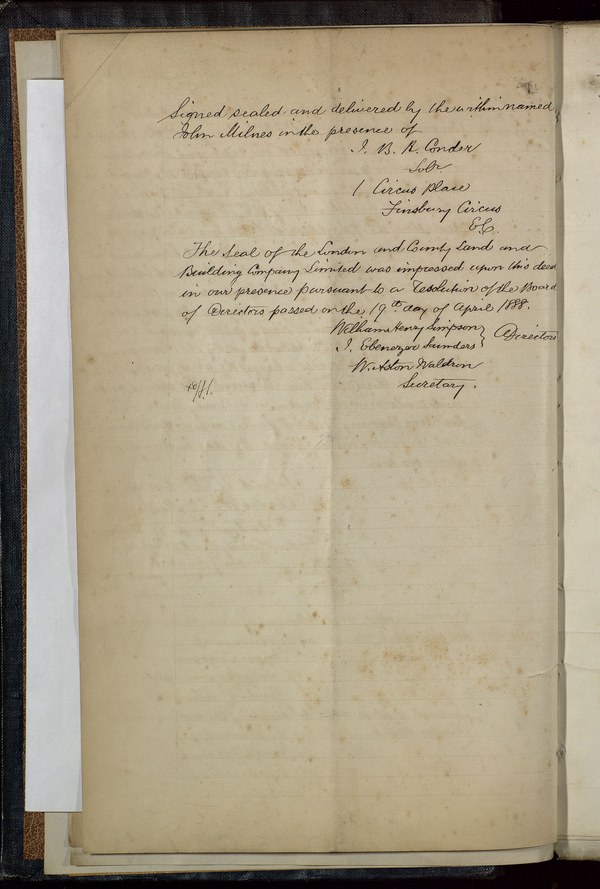 Signed sealed and delivered by the within named
John Milnes in the presence of
J. B. R. Conder
Solr.
1 Circus Place
Finsbury Circus
E.C.
The Seal of the London and County Land and
Building Company Limited was impressed upon this deed
in our presence pursuant to a Resolution of the Board
of Directors passed on the 19th day of April 1888.
William Henry Simpson
J. Ebenezer Saunders } Directors
W. Aston Waldron
Secretary.